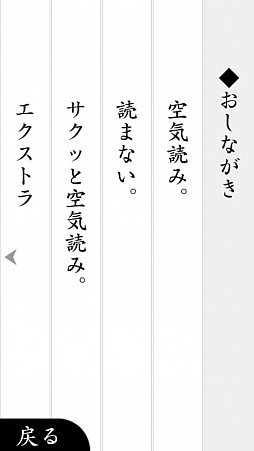 ◆おしながき
空気読み。
読まない。
サクッと空気読み。
エクストラ
戻る